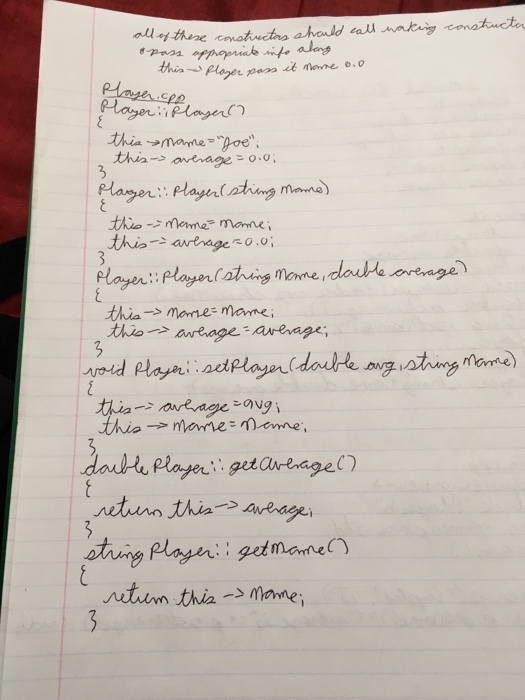 all of these constructors should call making constructo
& pass appropriate info along
this → Player pass it name 0.0
Player.cpp
Player::Player()
{
this->name="Joe";
this->average=0.0;
}
Player::Player(string name)
{
this->name=name;
this->average=0.0;
}
Player::Player(string name, double average)
{
this->name=name;
this->average=average;
}
void Player::setPlayer(double avg, string name)
{
this->average=avg;
this->name=name;
}
double Player::getAverage()
{
return this->average;
}
string Player::getName()
{
return this->name;
}